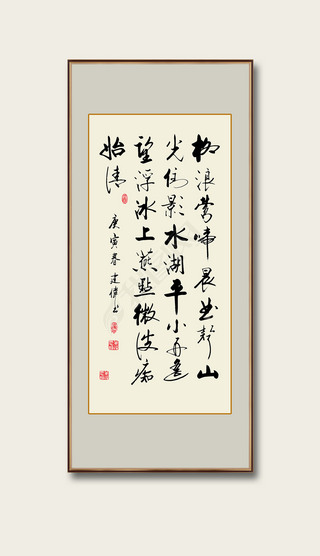 柳浪莺啼晨出声山
光倒影水湖平小舟遥
望浮冰上燕点微波痴
始清
庚寅春建伟书